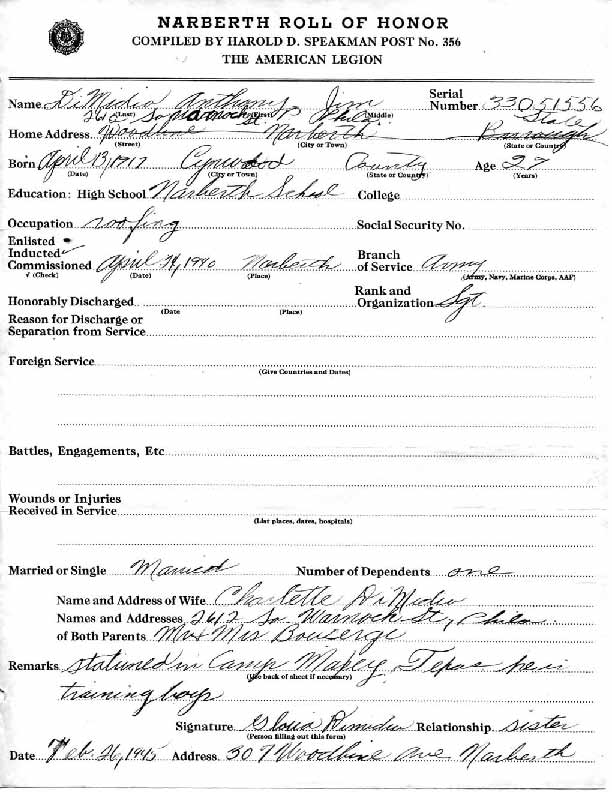 NARBERTH ROLL OF HONOR
COMPILED BY HAROLD D. SPEAKMAN POST No. 356
THE AMERICAN LEGION
Name DiMidio, Anthony Jim Serial Number 33051556
(Last) (First) (Middle)
2612 So Warnock St Phila State
Home Address Woodbine Narberth Borrough
(Street) (City or Town) (State or County)
Born April 13, 1917 Cynwood County Age 27
(Date) (City or Town) (State or County) (Years)
Education: High School Narberth School College
Occupation roofing Social Security No.
Enlisted
Inducted ✓
Commissioned April 1940 Narberth Branch of Service Army
√ (Check) (Date) (Place) (Army, Navy, Marine Corps, AAF)
Honorably Discharged Rank and Organization Sgt.
(Date (Place)
Reason for Discharge or
Separation from Service
Foreign Service
(Give Countries and Dates)
Battles, Engagements, Etc
Wounds or Injuries
Received in Service
(List places, dates, hospitals)
Married or Single Married Number of Dependents one
Name and Address of Wife Charlette DiMidio
Names and Addresses 2612 So Warnock St, Phila
of Both Parents Mr & Mrs
Remarks stationed in Camp Texas
(Use back of sheet if necessary)
training boys
Signature Gloria Dimidio Relationship sister
(Person filling out this form)
Date Feb. 26, 1945 Address 307 Woodbine Ave Narberth